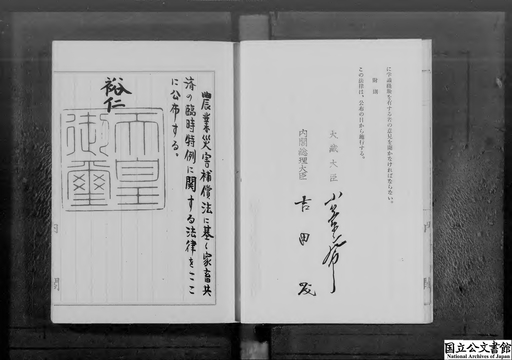 に学識経験を有する者の意見を聞かなければならない。
附則
この法律は、公布の日から施行する。
大蔵大臣
内閣総理大臣 吉田茂
農業災害補償法に基く家畜共
済の臨時特例に関する法律をここ
に公布する。
裕仁
天皇
御璽
国立公文書館
National Archives of Japan